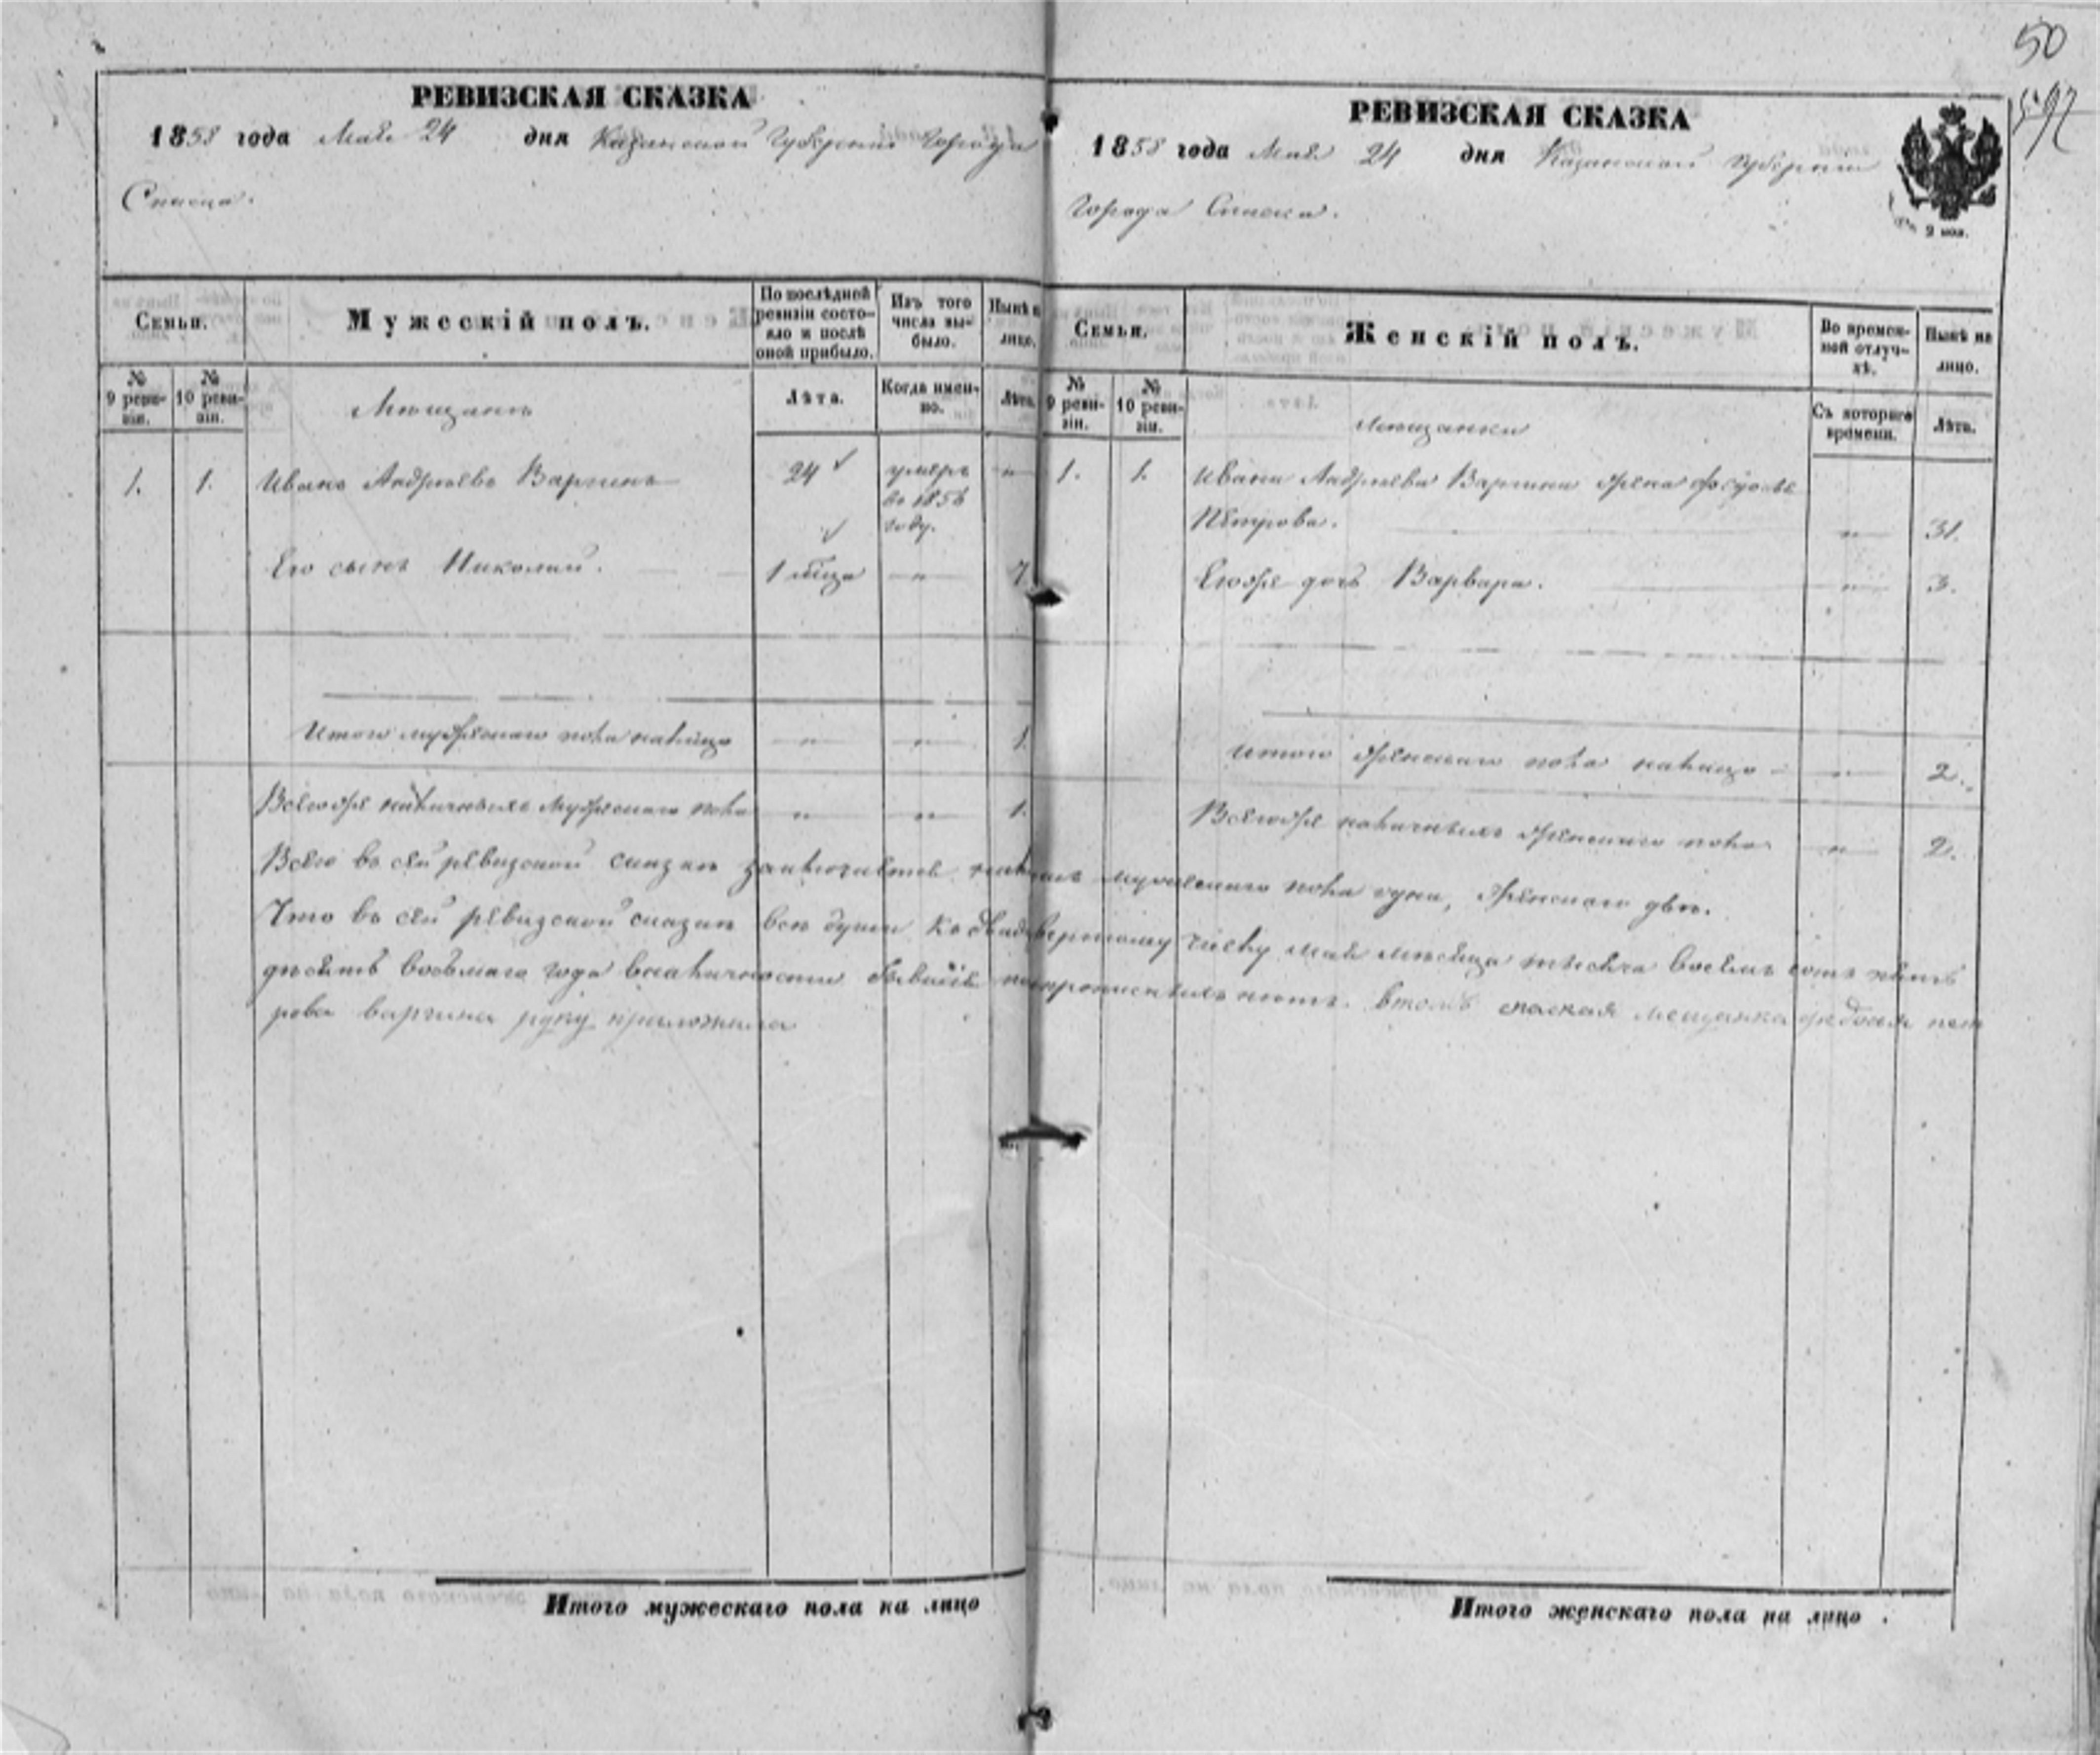 50
597
РЕВИЗСКАЯ СКАЗКА
1858 года Мая 24 дня Казанской Губернии Города
Спаска.
Семьи.
Мужескій полъ.
По послѣдней ревизіи состояло и послѣ оной прибыло.
Изъ того числа выбыло.
Нынѣ на лицо.
№ 9 ревизіи.
№ 10 ревизіи.
Мѣщанъ
Лѣта.
Когда именно.
Лѣта.
1. 1. Иванъ Андреевъ Варгинъ 24 умеръ въ 1856 году. "
Его сынъ Николай. 1 мѣца " 7
Итого мужескаго пола налицо " " 1.
Всего же наличныхъ мужескаго пола " " 1.
РЕВИЗСКАЯ СКАЗКА
1858 года Мая 24 дня Казанской Губерніи
Города Спаска.
2 коп.
Семьи.
Женскій полъ.
Во временной отлучкѣ.
Нынѣ на лицо.
№ 9 ревизіи.
№ 10 ревизіи.
Мѣщанки
Съ котораго времени.
Лѣта.
1. 1. Ивана Андреева Варгина жена Федосья
Петрова. " 31.
Его же дочь Варвара. " 3.
Итого женскаго пола налицо " 2.
Всего же наличныхъ женскаго пола " 2.
Всего въ сей ревизской сказкѣ заключается мужескаго пола одна, женскаго двѣ.
Что въ сей ревизской сказкѣ всѣ души къ двадцать четвертому числу мая мѣсяца тысяча восемь сотъ пять
десятъ восьмаго года в наличности бывшіе непрописныхъ нѣтъ. Втомъ спаская мещанка федосья пет
рова варгина руку приложила
Итого мужескаго пола на лицо
Итого женскаго пола на лицо .